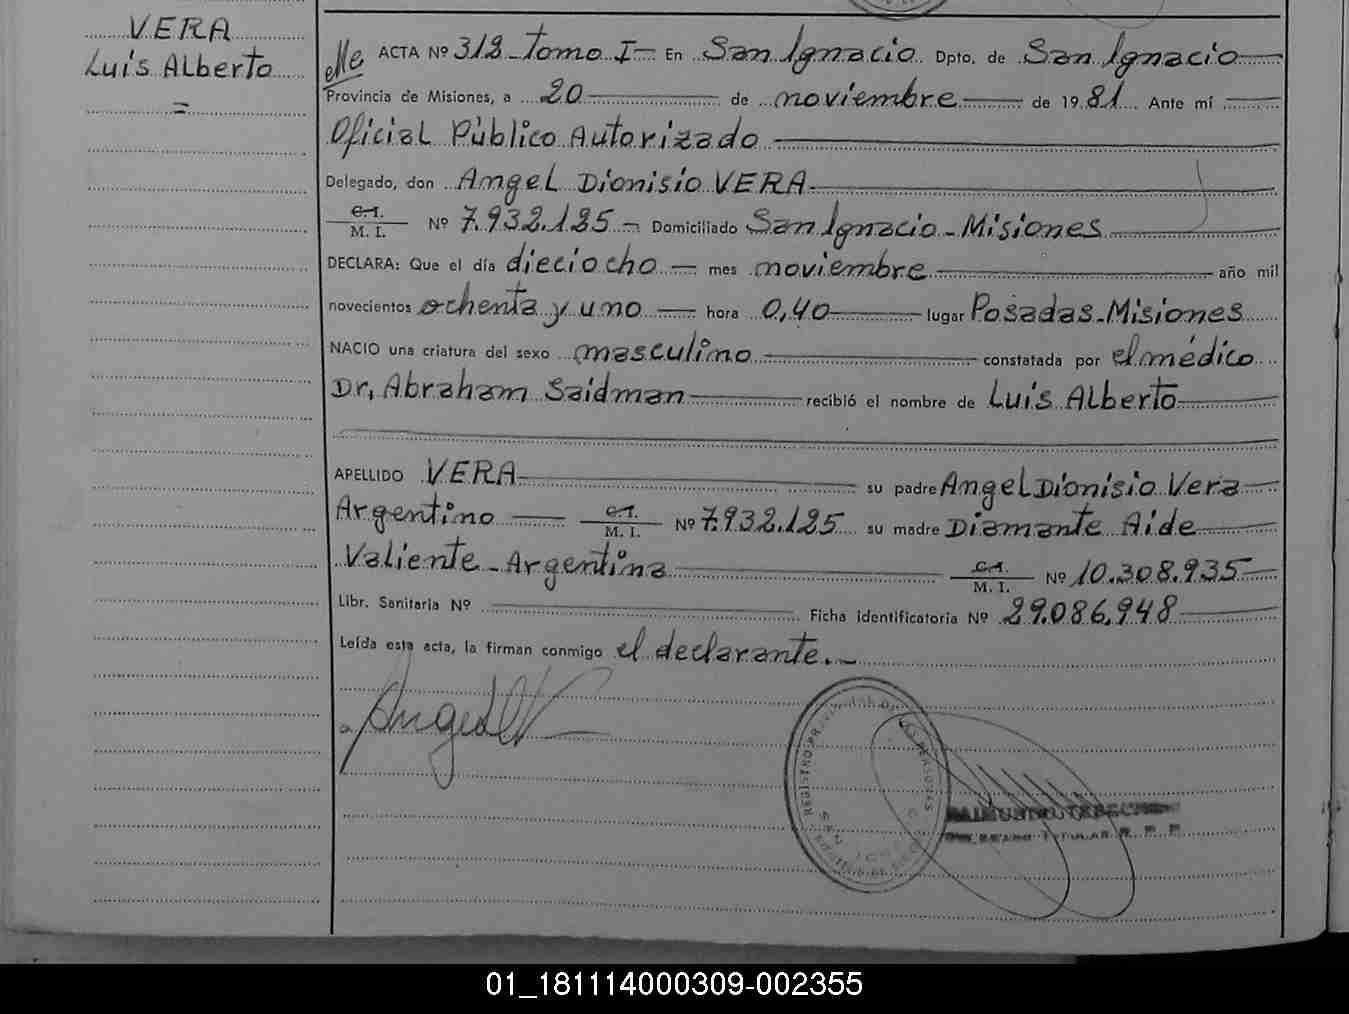 VERA
Luis Alberto
=
ACTA Nº 312 - Tomo I - En San Ignacio Dpto. de San Ignacio
Provincia de Misiones, a 20 de noviembre de 1981 Ante mí
Oficial Público Autorizado
Delegado, don Angel Dionisio VERA
C. I.
M. I. Nº 7.932.125 - Domiciliado San Ignacio - Misiones
DECLARA: Que el día dieciocho - mes noviembre año mil
novecientos ochenta y uno - hora 0,40 lugar Posadas - Misiones
NACIO una criatura del sexo masculino constatada por el médico
Dr, Abraham Saidman recibió el nombre de Luis Alberto
APELLIDO VERA su padre Angel Dionisio Vera
Argentino C. I. M. I. Nº 7.932.125 su madre Diamante Aide
Valiente - Argentina C. I. M. I. Nº 10.308.935
Libr. Sanitaria Nº Ficha identificatoria Nº 29.086.948
Leída esta acta, la firman conmigo el declarante. -
REGISTRO PROVINCIAL DE LAS PERSONAS
01_181114000309-002355